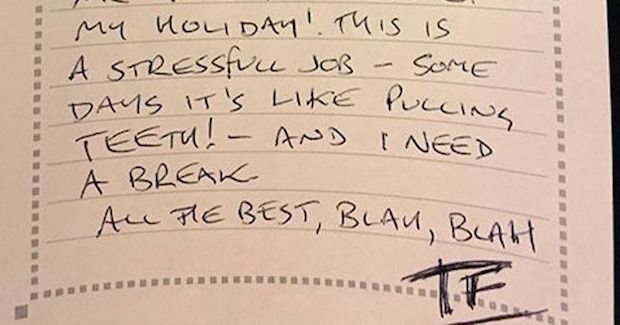 MY HOLIDAY! THIS IS
A STRESSFULL JOB – SOME
DAYS IT'S LIKE PULLING
TEETH! – AND I NEED
A BREAK
ALL THE BEST, BLAH, BLAH
TF